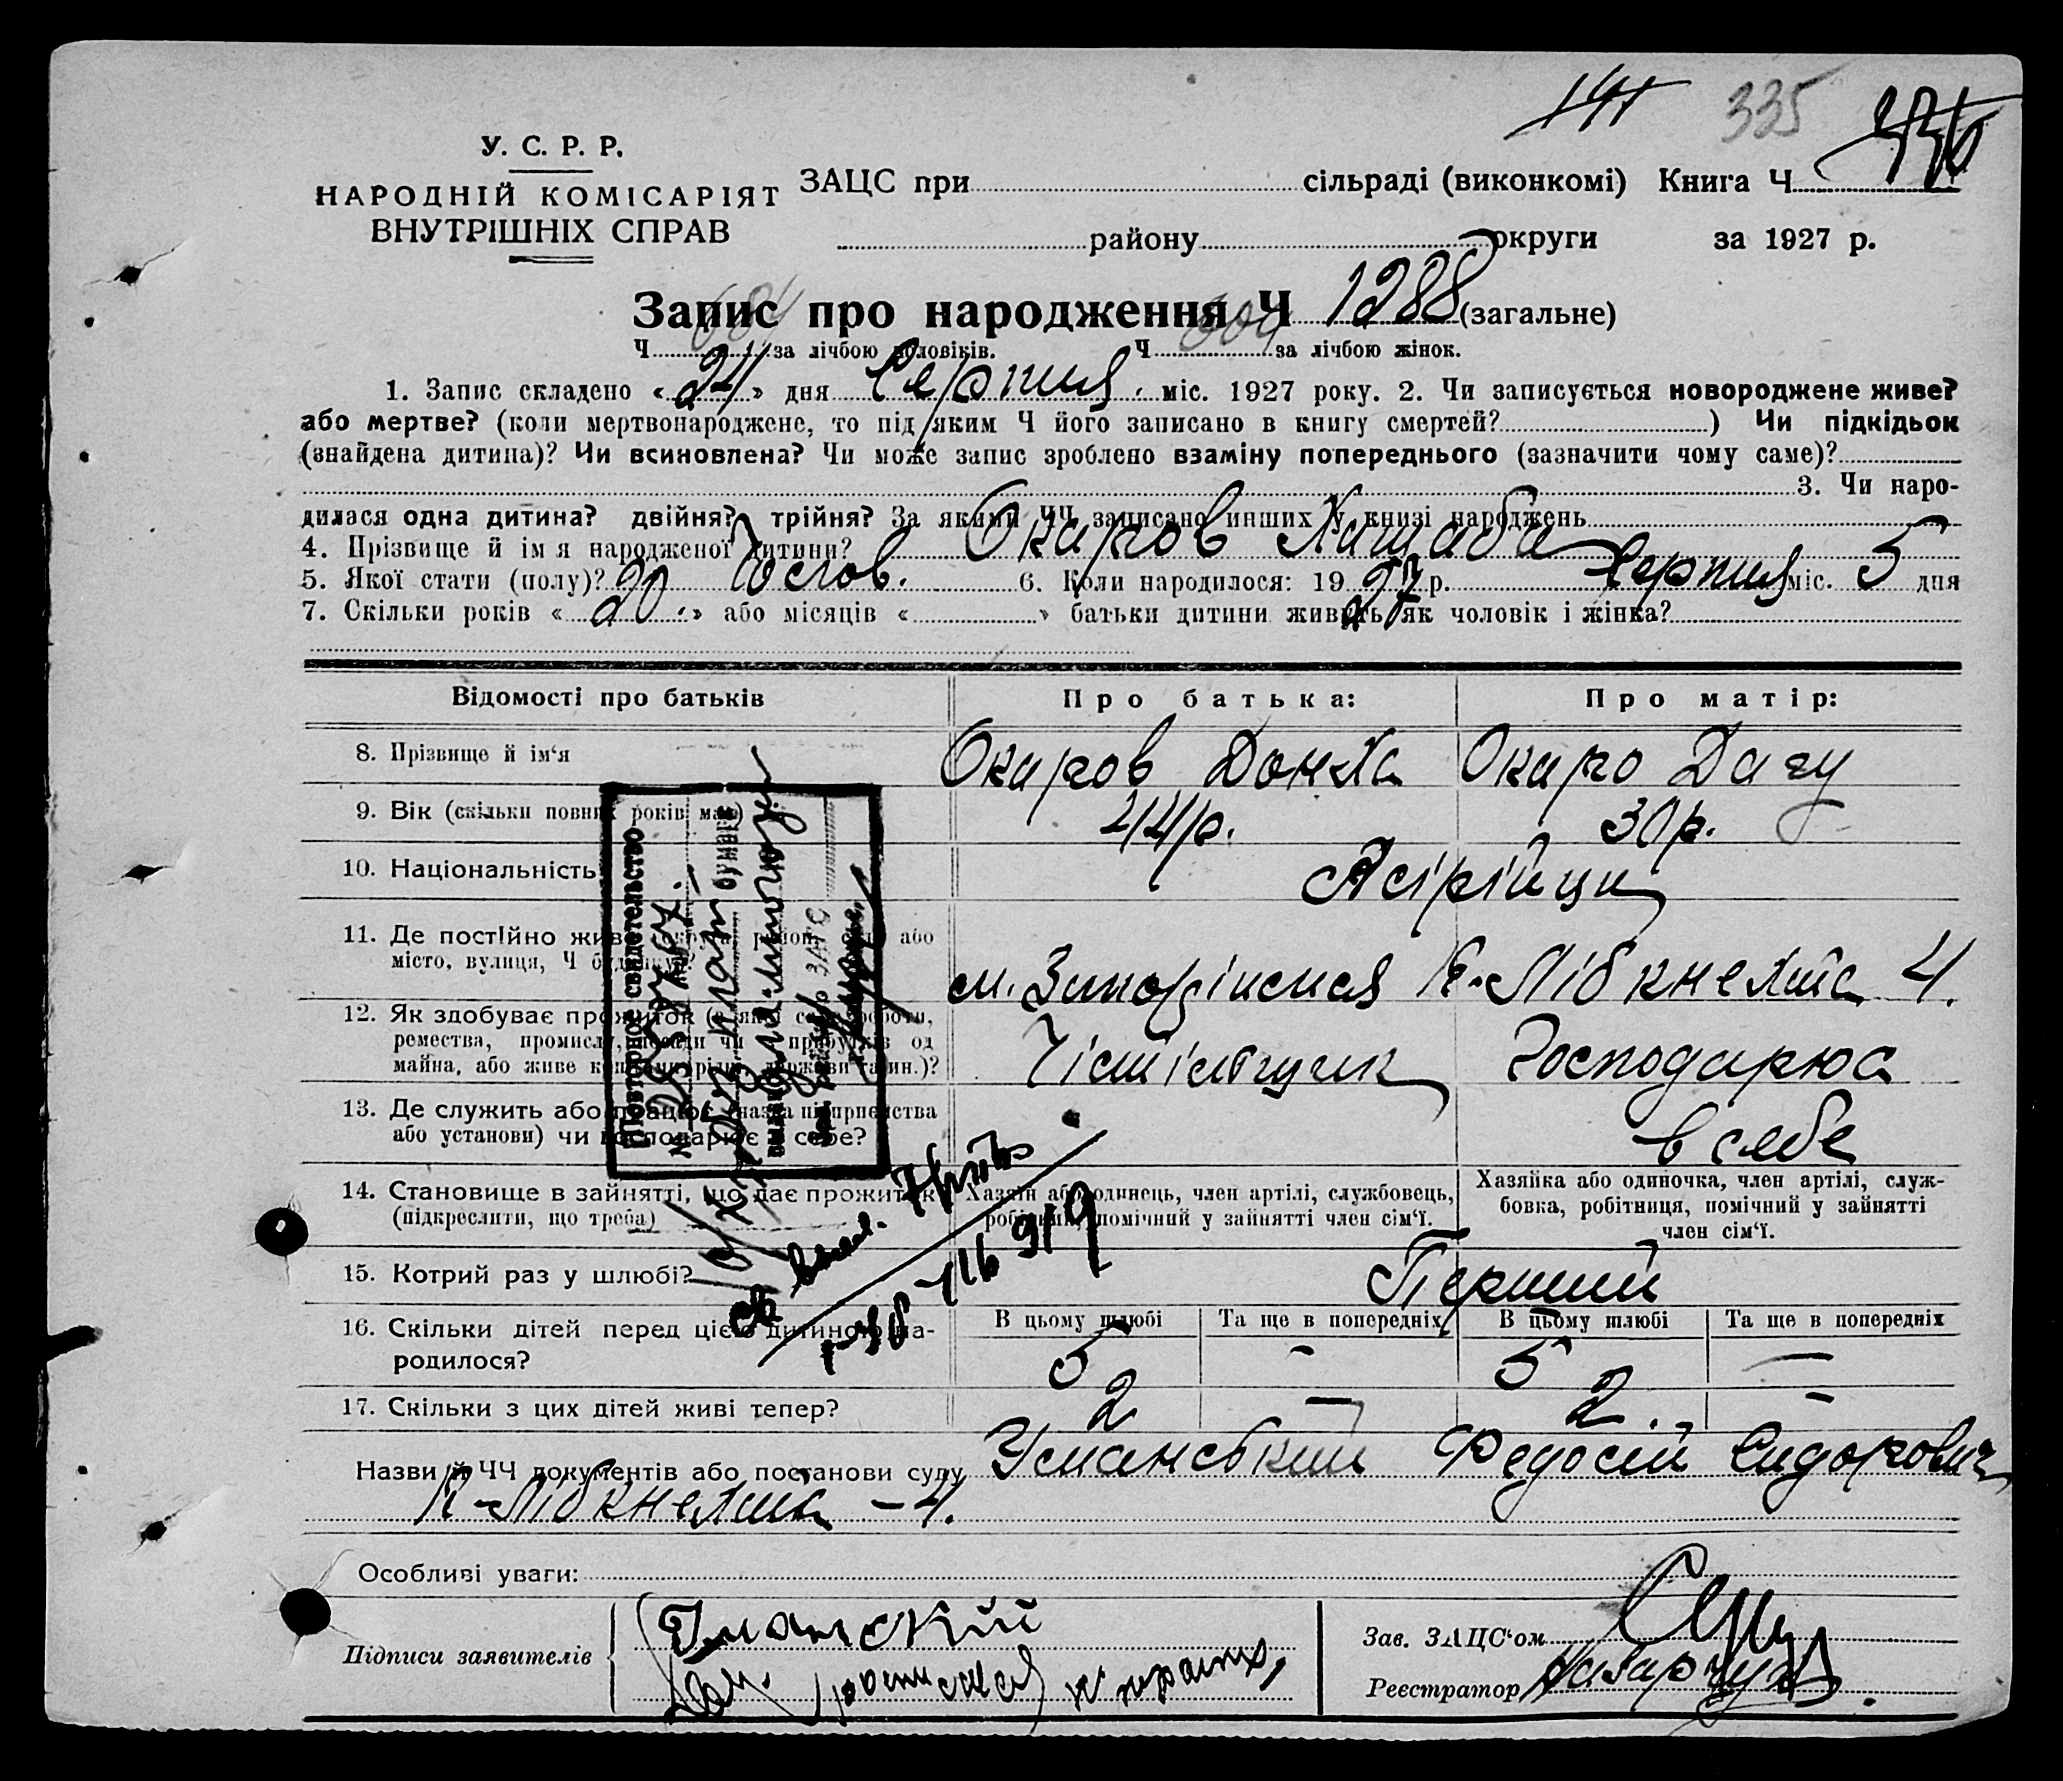 335
У. С. Р. Р.
НАРОДНІЙ КОМІСАРІЯТ
ВНУТРІШНІХ СПРАВ
ЗАЦС при сільраді (виконкомі) Книга Ч
району округи за 1927 р.
Запис про народження Ч 1288 (загальне)
Ч за лічбою чоловіків. Ч за лічбою жінок.
1. Запис складено « 24 » дня Серпня міс. 1927 року. 2. Чи записується новороджене живе?
або мертве? (коли мертвонароджене, то під яким Ч його записано в книгу смертей? ) Чи підкідьок
(знайдена дитина)? Чи всиновлена? Чи може запис зроблено взаміну попереднього (зазначити чому саме)?
3. Чи наро-
дилася одна дитина? двійня? трійня? За якими ЧЧ записано инших у книзі народжень
4. Прізвище й ім я народженої дитини? Окаров Хашаба
5. Якої стати (полу)? Чолов. 6. Коли народилося: 19 27 р. Серпня міс. 5 дня
7. Скільки років « 20 » або місяців « » батьки дитини живуть як чоловік і жінка?
Відомості про батьків Про батька: Про матір:
8. Прізвище й ім'я Окаров Донха Окаро Дагу
9. Вік (скільки повних років має) 44р. 30р.
10. Національність Асірійци
11. Де постійно живе (округа, район, село або
місто, вулиця, Ч будинку)? м. Зінов'інська К-Лібкнехта 4.
12. Як здобуває прожиток (з якої саме роботи,
ремества, промислу, посади чи прибутків од
майна, або живе коштом держави та ин.)? Чістільщик Господарює
13. Де служить або працює (назва підприємства
або установи) чи господарює в себе? в себе
14. Становище в зайнятті, що дає прожиток
(підкреслити, що треба)
Хазяїн або одинець, член артілі, службовець,
робітник, помічний у зайнятті член сім'ї.
Хазяйка або одиночка, член артілі, служ-
бовка, робітниця, помічний у зайнятті
член сім'ї.
15. Котрий раз у шлюбі? Перший
16. Скільки дітей перед цією дитиною на-
родилося?
В цьому шлюбі Та ще в попередніх В цьому шлюбі Та ще в попередніх
5 - 5 —
17. Скільки з цих дітей живі тепер? 2 — 2. -
Назви й ЧЧ документів або постанови суду Уманський Федосій Сидорович
К-Лібкнехта - 4.
Особливі уваги:
Підписи заявителів
Уманский
Зав. ЗАЦС'ом
Реєстратор
Повторное свидетельство
№
выдано